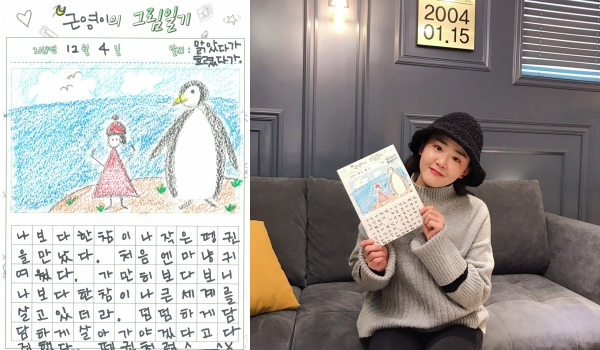 근영이의 그림일기
12월 4일 날씨: 맑았다가
흐렸다가.
나보다한참이나작은펭귄
을만났다. 처음엔마냥귀
여웠다. 가만히보다보니
나보다한참이나큰세계를
살고있더라. 덤덤하게담
담하게살아가야겠다고다
짐했다. 펭귄처럼
2004
01.15